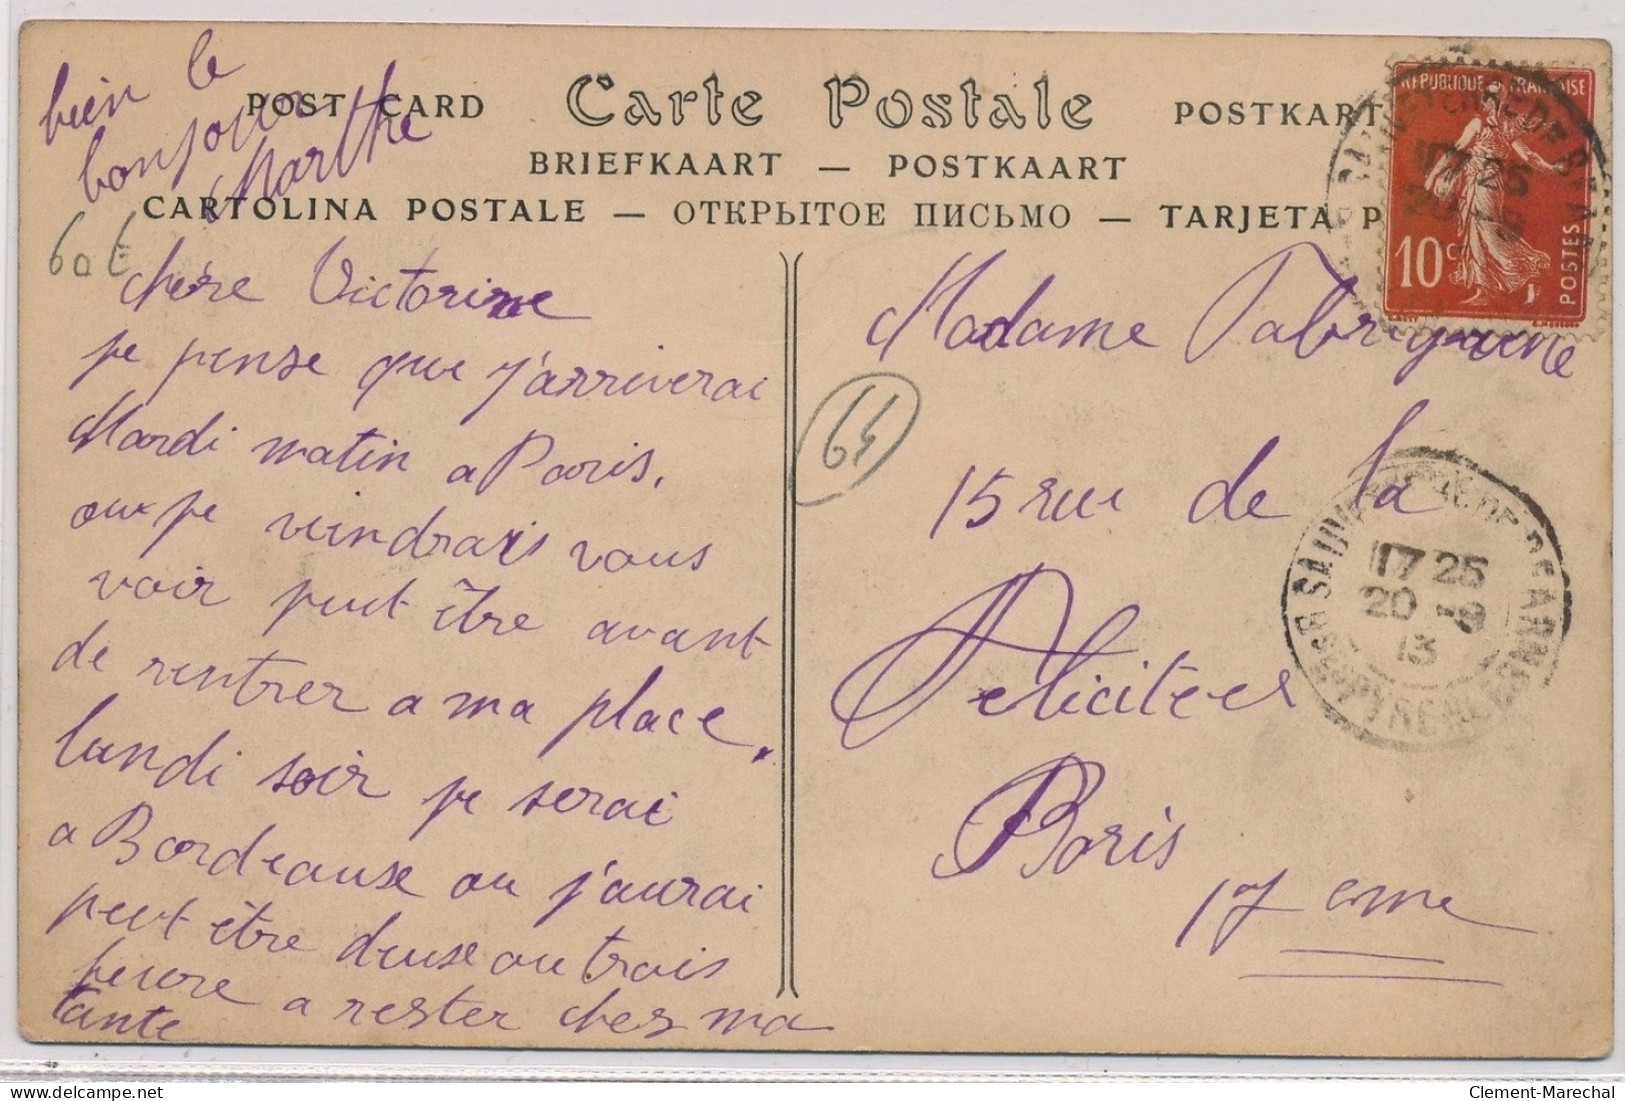 bien le
bonjour
Marthe
POST CARD Carte Postale POSTKART
BRIEFKAART — POSTKAART
CARTOLINA POSTALE — ОТКРЫТОЕ ПИСЬМО — TARJETA P
60 €
chère Victorine
je pense que j'arriverai
Mardi matin a Paris.
ou je viendrais vous
voir peut être avant
de rentrer a ma place.
lundi soir je serai
a Bordeause ou j'aurai
peut être deuse ou trois
heure a rester chez ma
tante
64
REPUBLIQUE FRANÇAISE
10c
POSTES
17 25
20 -9
Madame
15 rue de la
Felicitees
Paris
17 eme
SAUVETERRE DE BEARN
17 25
20 -9
13
BSSES PYRENEES
delcampe.net
Clement-Marechal